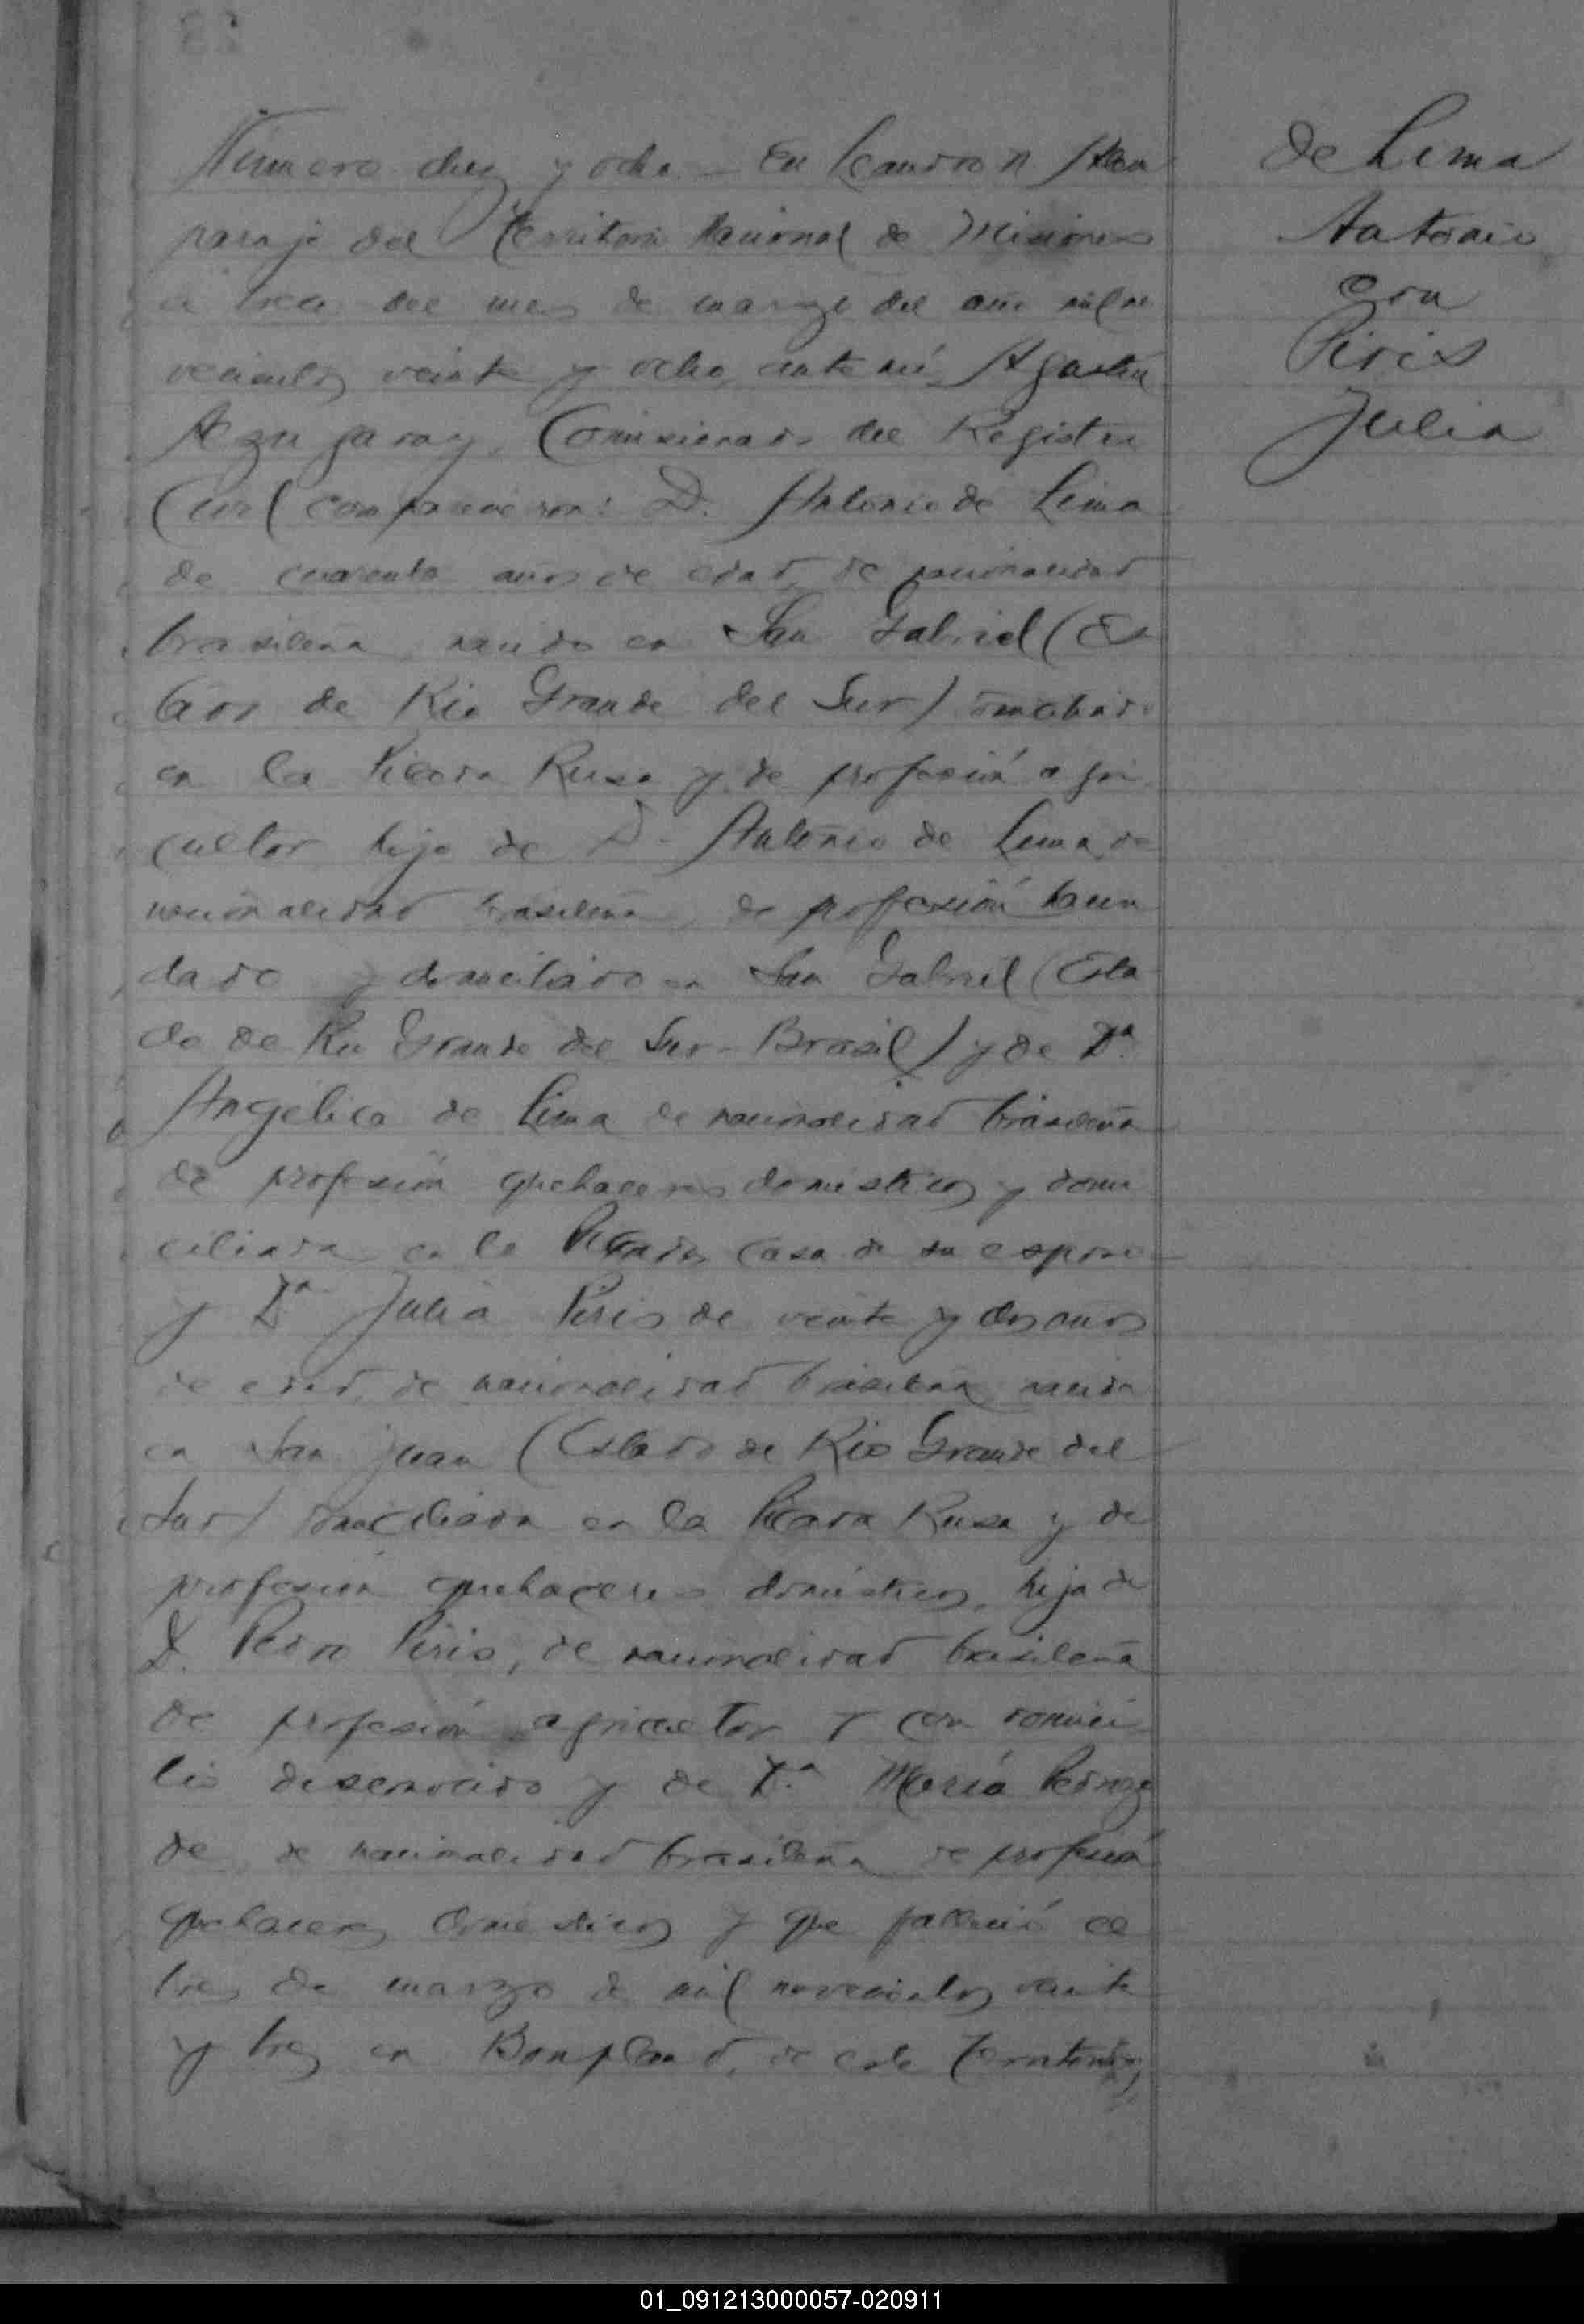 Número diez y ocho - En Leandro N Alem
paraje del Territorio Nacional de Misiones
a tres del mes de marzo del año mil no
vecientos veinte y ocho, ante mí, Agustín
Azugaray, Comisionado del Registro
Civil comparecieron: D. Antonio de Lima
de cuarenta años de edad, de nacionalidad
brasileña, nacido en San Gabriel (Es
tado de Rio Grande del Sur) domiciliado
en la Picada Rusa y de profesión agri
cultor hijo de D. Antonio de Lima, de
nacionalidad brasileña, de profesión hacen
dado y domiciliado en San Gabriel (Esta
do de Rio Grande del Sur - Brasil) y de Dª
Angélica de Lima de nacionalidad brasileña
de profesión quehaceres domésticos y domi
ciliada en la casa de su esposo
y Dª Julia Piris de veinte y dos años
de edad, de nacionalidad brasileña nacida
en San Juan (Estado de Rio Grande del
Sur) domiciliada en la Picada Rusa y de
profesión quehaceres domésticos, hija de
D. Pedro Piris, de nacionalidad brasileña
de profesión agricultor y con domici
lio desconocido y de Dª María
de nacionalidad brasileña de profesión
quehaceres domésticos y que falleció el
tres de marzo de mil novecientos veinte
y tres en Bonpland, de este Territorio,
de Lima
Antonio
con
Piris
Julia
01_091213000057-020911